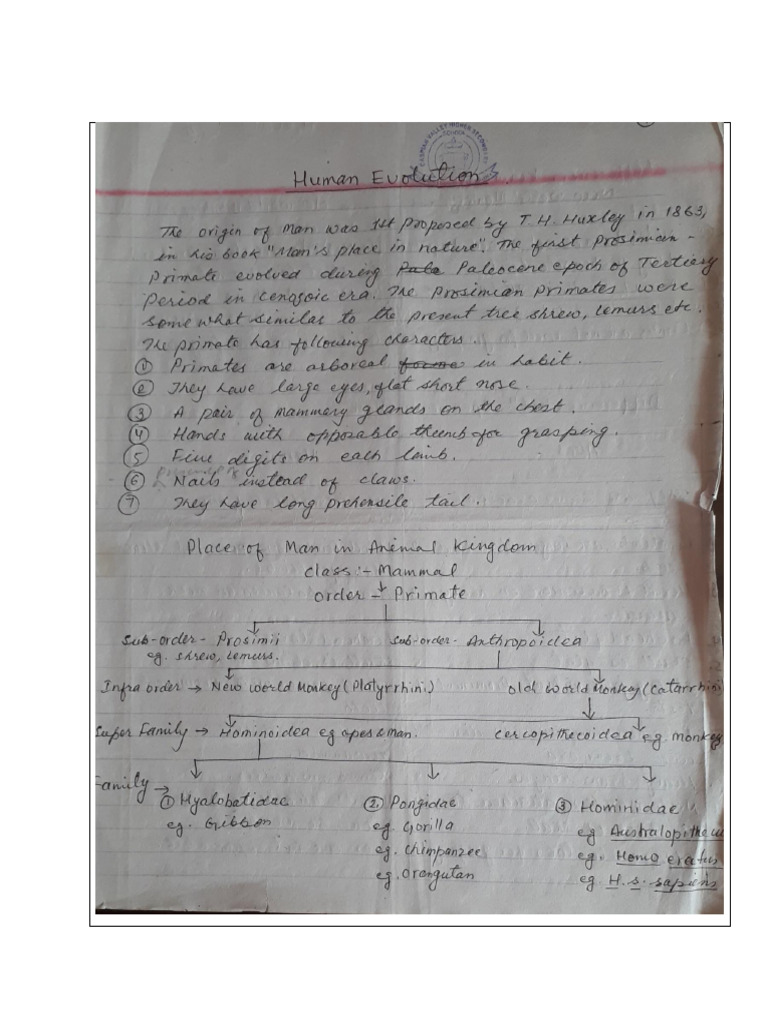 GARDEN VALLEY HIGHER SECONDARY
SCHOOL
Human Evolution
The origin of man was 1st proposed by T. H. Huxley in 1863,
in his book "Man's place in nature". The first Prosimian -
Primate evolved during Pale Paleocene epoch of Tertiary
Period in cenozoic era. The Prosimian Primates were
some what similar to the present tree shrew, lemurs etc.
The primate has following characters.
① Primates are arboreal forme in habit.
② They have large eyes, flat short nose.
③ A pair of mammary glands on the chest.
④ Hands with opposable thumb for grasping.
⑤ Five digits on each limb.
⑥ Nails instead of claws.
⑦ They have long prehensile tail.
Place of Man in Animal Kingdom
class :- Mammal
order - Primate
Sub-order - Prosimii sub-order - Anthropoidea
eg. shrew, Lemurs.
Infra order → New world Monkey (Platyrrhini) old world Monkey (Catarrhini)
Super Family → Hominoidea eg apes & man. Cercopithecoidea eg. monkey
Family →
① Hyalobatidae ② Pongidae ③ Hominidae
eg. Gibbon eg. Gorilla eg Australopithecu
eg. Chimpanzee eg. Homo eratus
eg. Orangutan eg H. s. sapiens